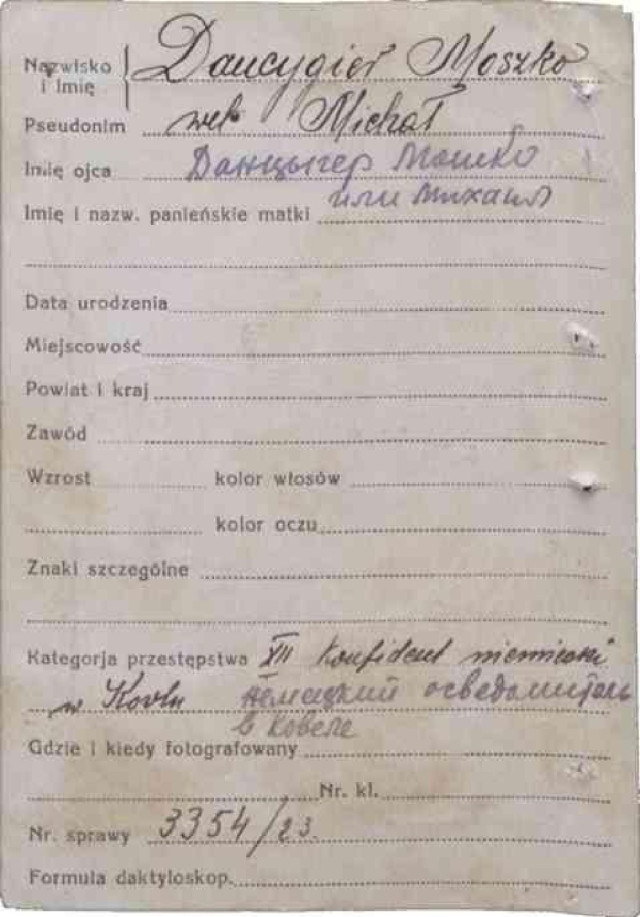 Nazwisko i Imię Dancygier Moszko
Pseudonim wel Michał
Imię ojca Данцыгер Мошко
или Михаил
Imię i nazw. panieńskie matki
Data urodzenia
Miejscowość
Powiat i kraj
Zawód
Wzrost kolor włosów
kolor oczu
Znaki szczególne
Kategorja przestępstwa XII Konfident niemiecki
w Kovlu немецкий осведомитель
в Ковеле
Gdzie i kiedy fotografowany
Nr. kl.
Nr. sprawy 3354/23.
Formuła daktyloskop.